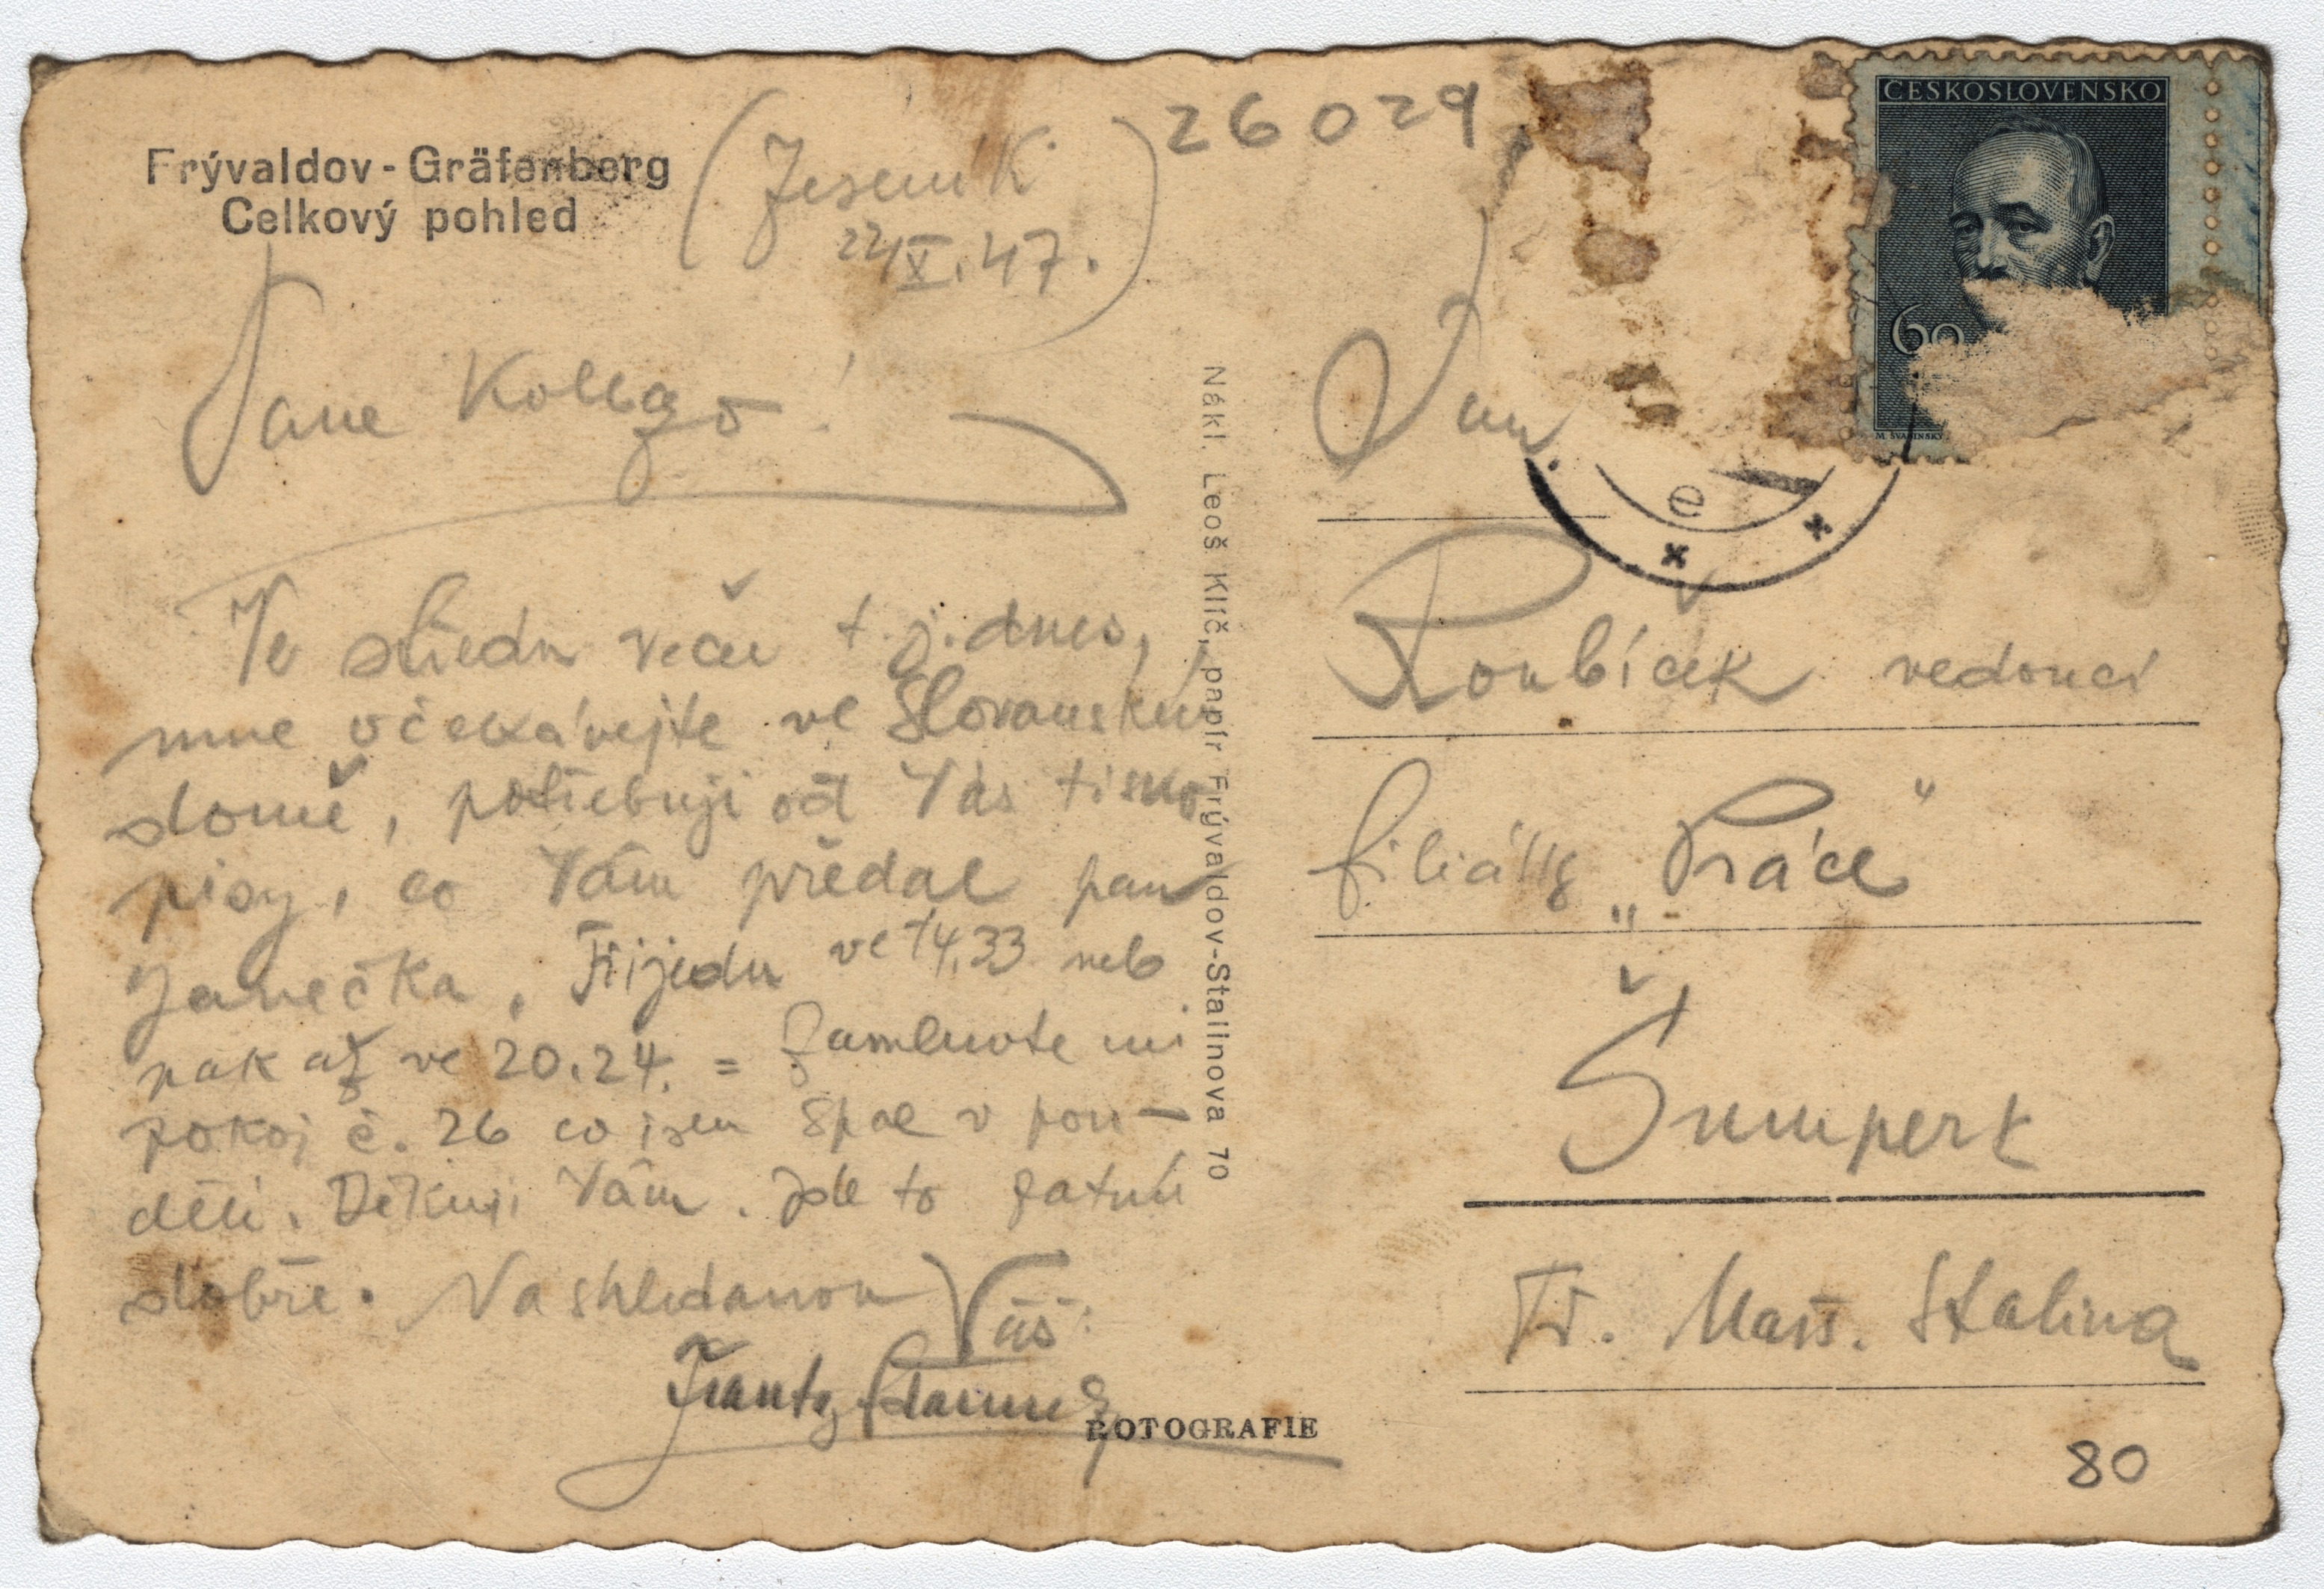 Frývaldov-Gräfenberg
Celkový pohled
(Jeseník
22/X.47.)
26029
Pane Kollego!
Ve středu večer t.j. dnes,
mne očekávejte ve Slovanském
domě, potřebuji od Vás tisko
pisy, co Vám předal pan
Janečka. Přijedu ve 14.33 neb
pak až ve 20.24. = Zamluvte mi
pokoj č. 26 co jsem spal v pon-
dělí. Děkuji Vám. Jde to zatím
dobře. Na shledanou Váš:
Frant.
ROTOGRAFIE
Nákl. Leoš Klíč, papír Frývaldov-Stalinova 70
ČESKOSLOVENSKO
60
M. ŠVABINSKÝ
e
Pan
Roubíček vedoucí
filiálky „Práce"
Šumperk
Tř. Marš. Stalina
80